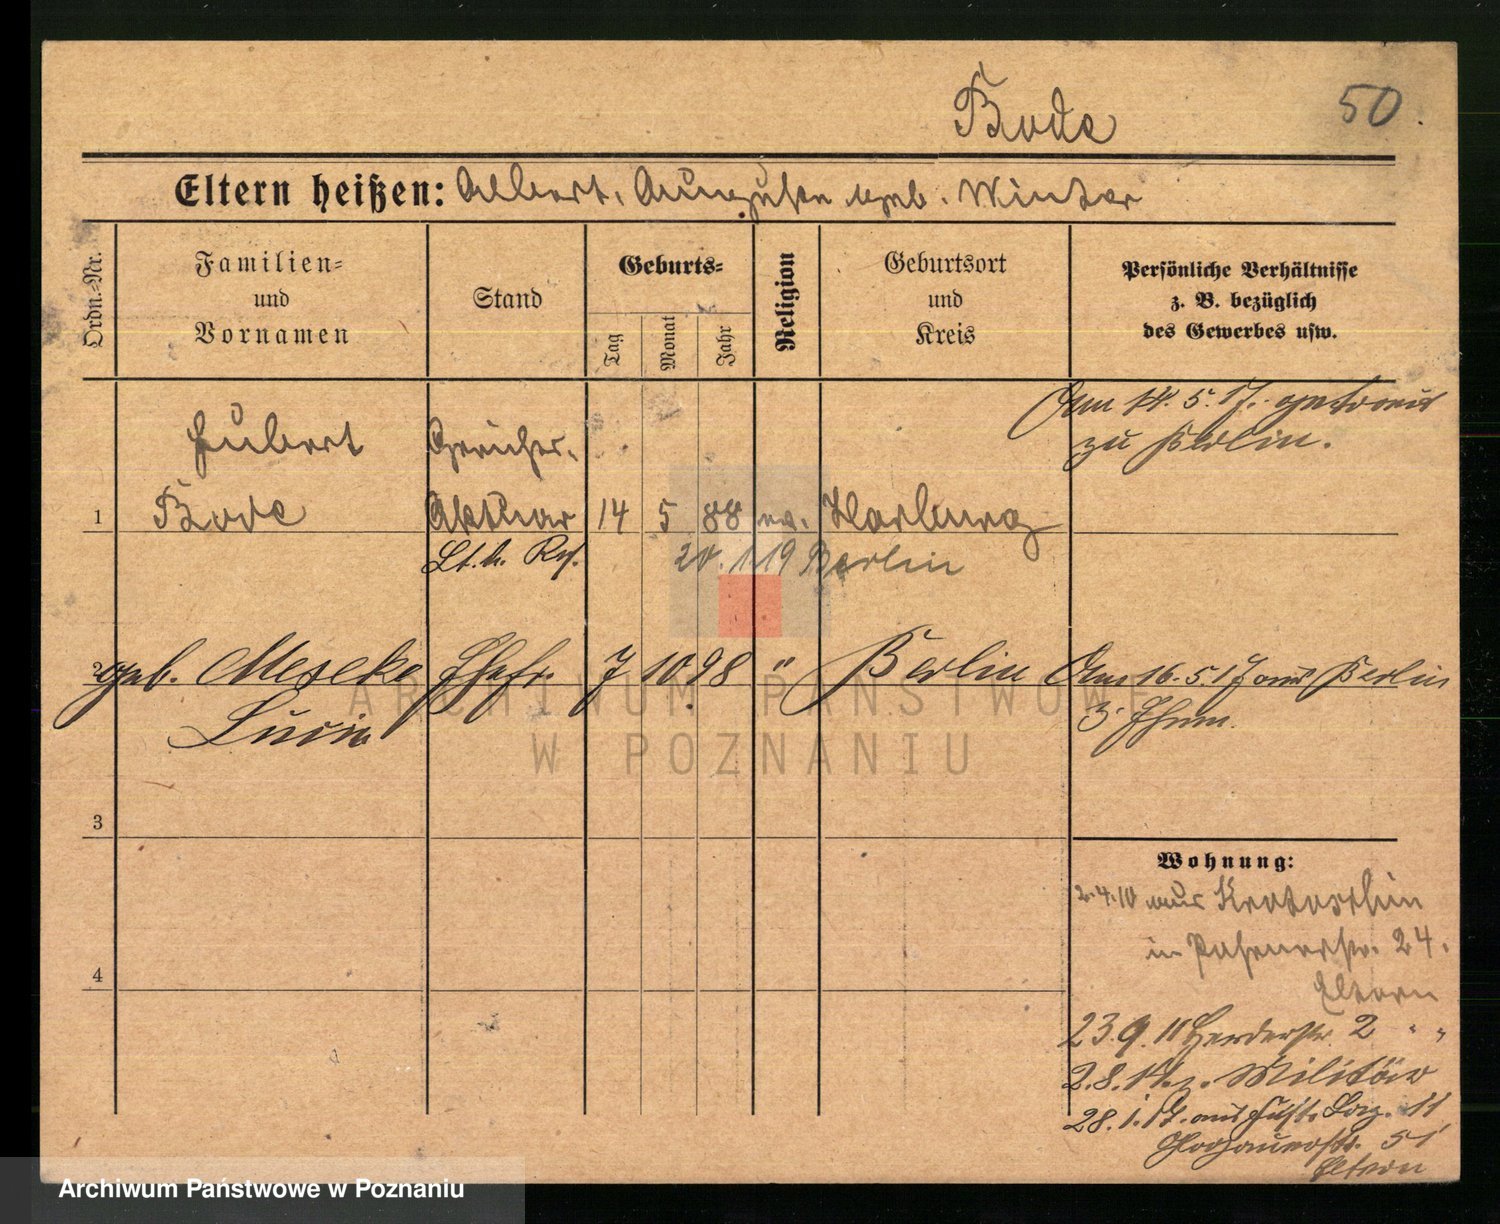 Bode
50.
Eltern heißen: Albert, Auguste geb. Winter
Ordn.-Nr.
Familien-
und
Vornamen
Stand
Geburts-
Tag
Monat
Jahr
Religion
Geburtsort
und
Kreis
Persönliche Verhältnisse
z. B. bezüglich
des Gewerbes usw.
Am 14. 5. 17. getraut
zu Berlin.
Hubert
Bode
Aktuar
1
14
5
88
ev.
Harburg
Lt. d. Res.
20. 1. 19 Berlin
2
geb. Meseke
Lucie
Ehefr.
7
10.
98
"
Berlin
Am 16. 5. 17 aus Berlin
z. Ehem.
3
4
Wohnung:
2.4.10 aus Krotoschin
in Posenerstr. 24.
Eltern
23.9.11 Herderstr. 2 " "
2.8.14. z. Militär
28.1.17. aus Laz. II
Glogauerstr. 51
Eltern
ARCHIWUM PAŃSTWOWE
W POZNANIU
Archiwum Państwowe w Poznaniu